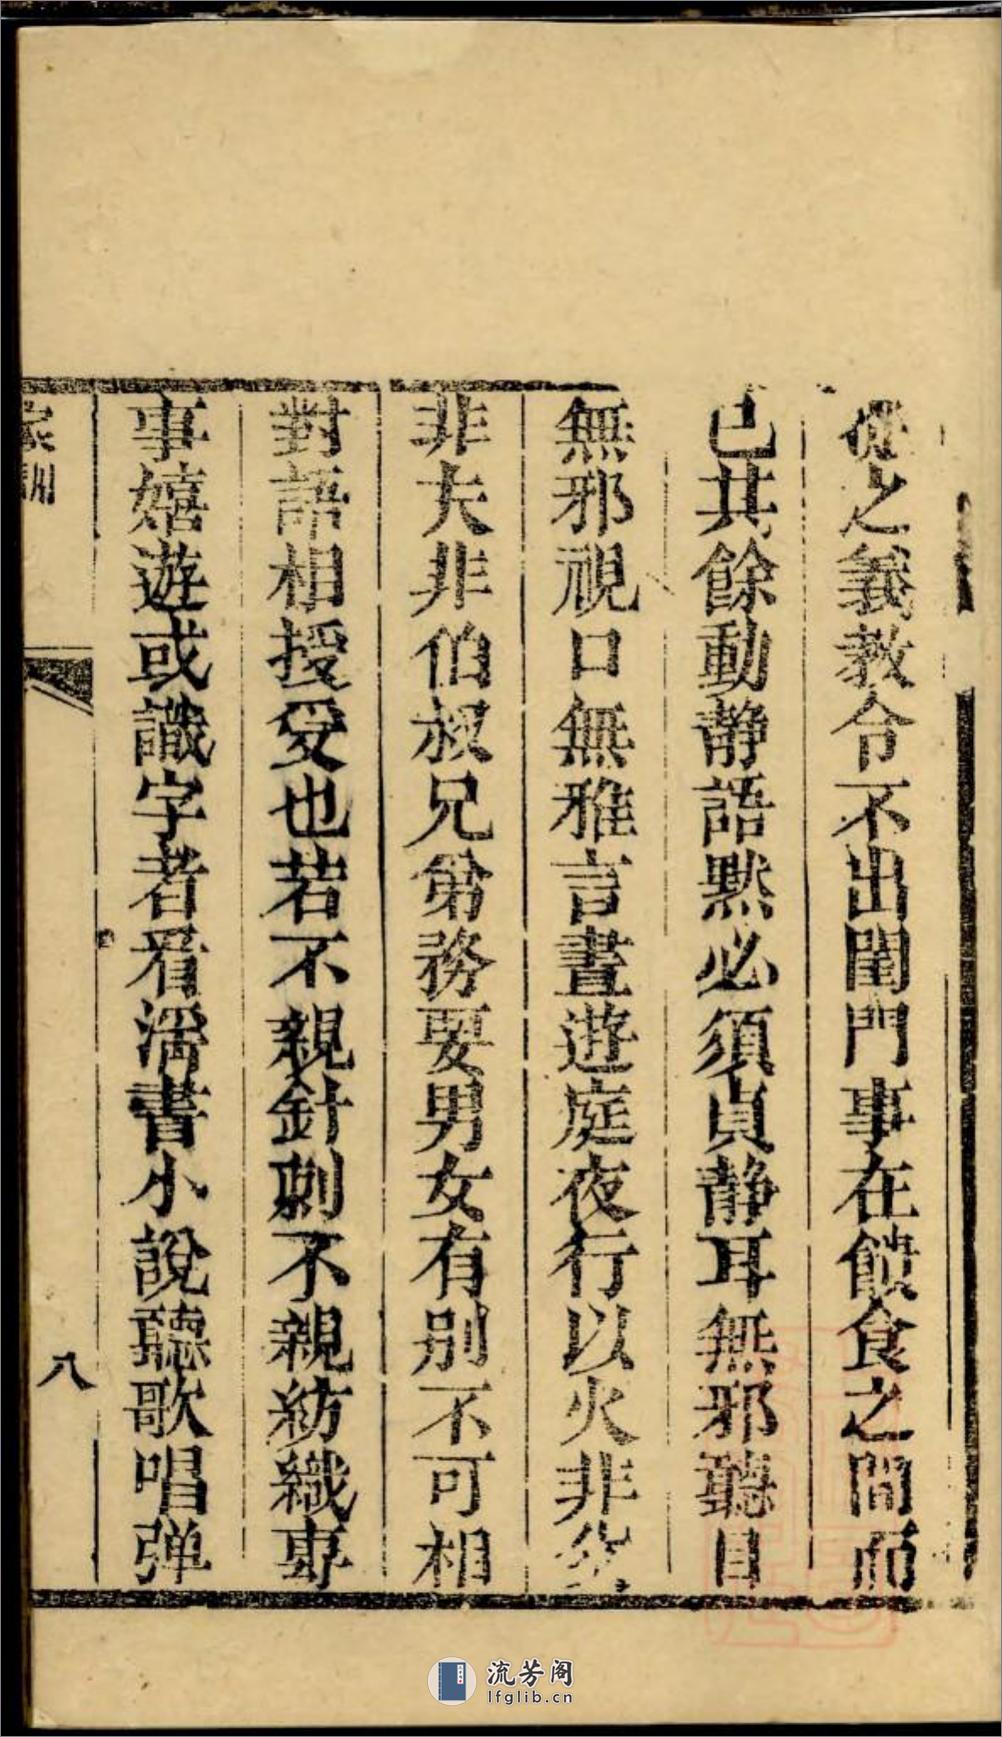 從之義教令不出閨門事在饋食之間而
已其餘動静語黙必須貞静耳無邪聽目
無邪視口無雅言晝遊庭夜行以火非父
非夫非伯叔兄弟務要男女有别不可相
對語相授受也若不親針刺不親紡織專
事嬉遊或識字者看淫書小說聽歌唱弹
家訓
八
流芳阁
lfglib.cn